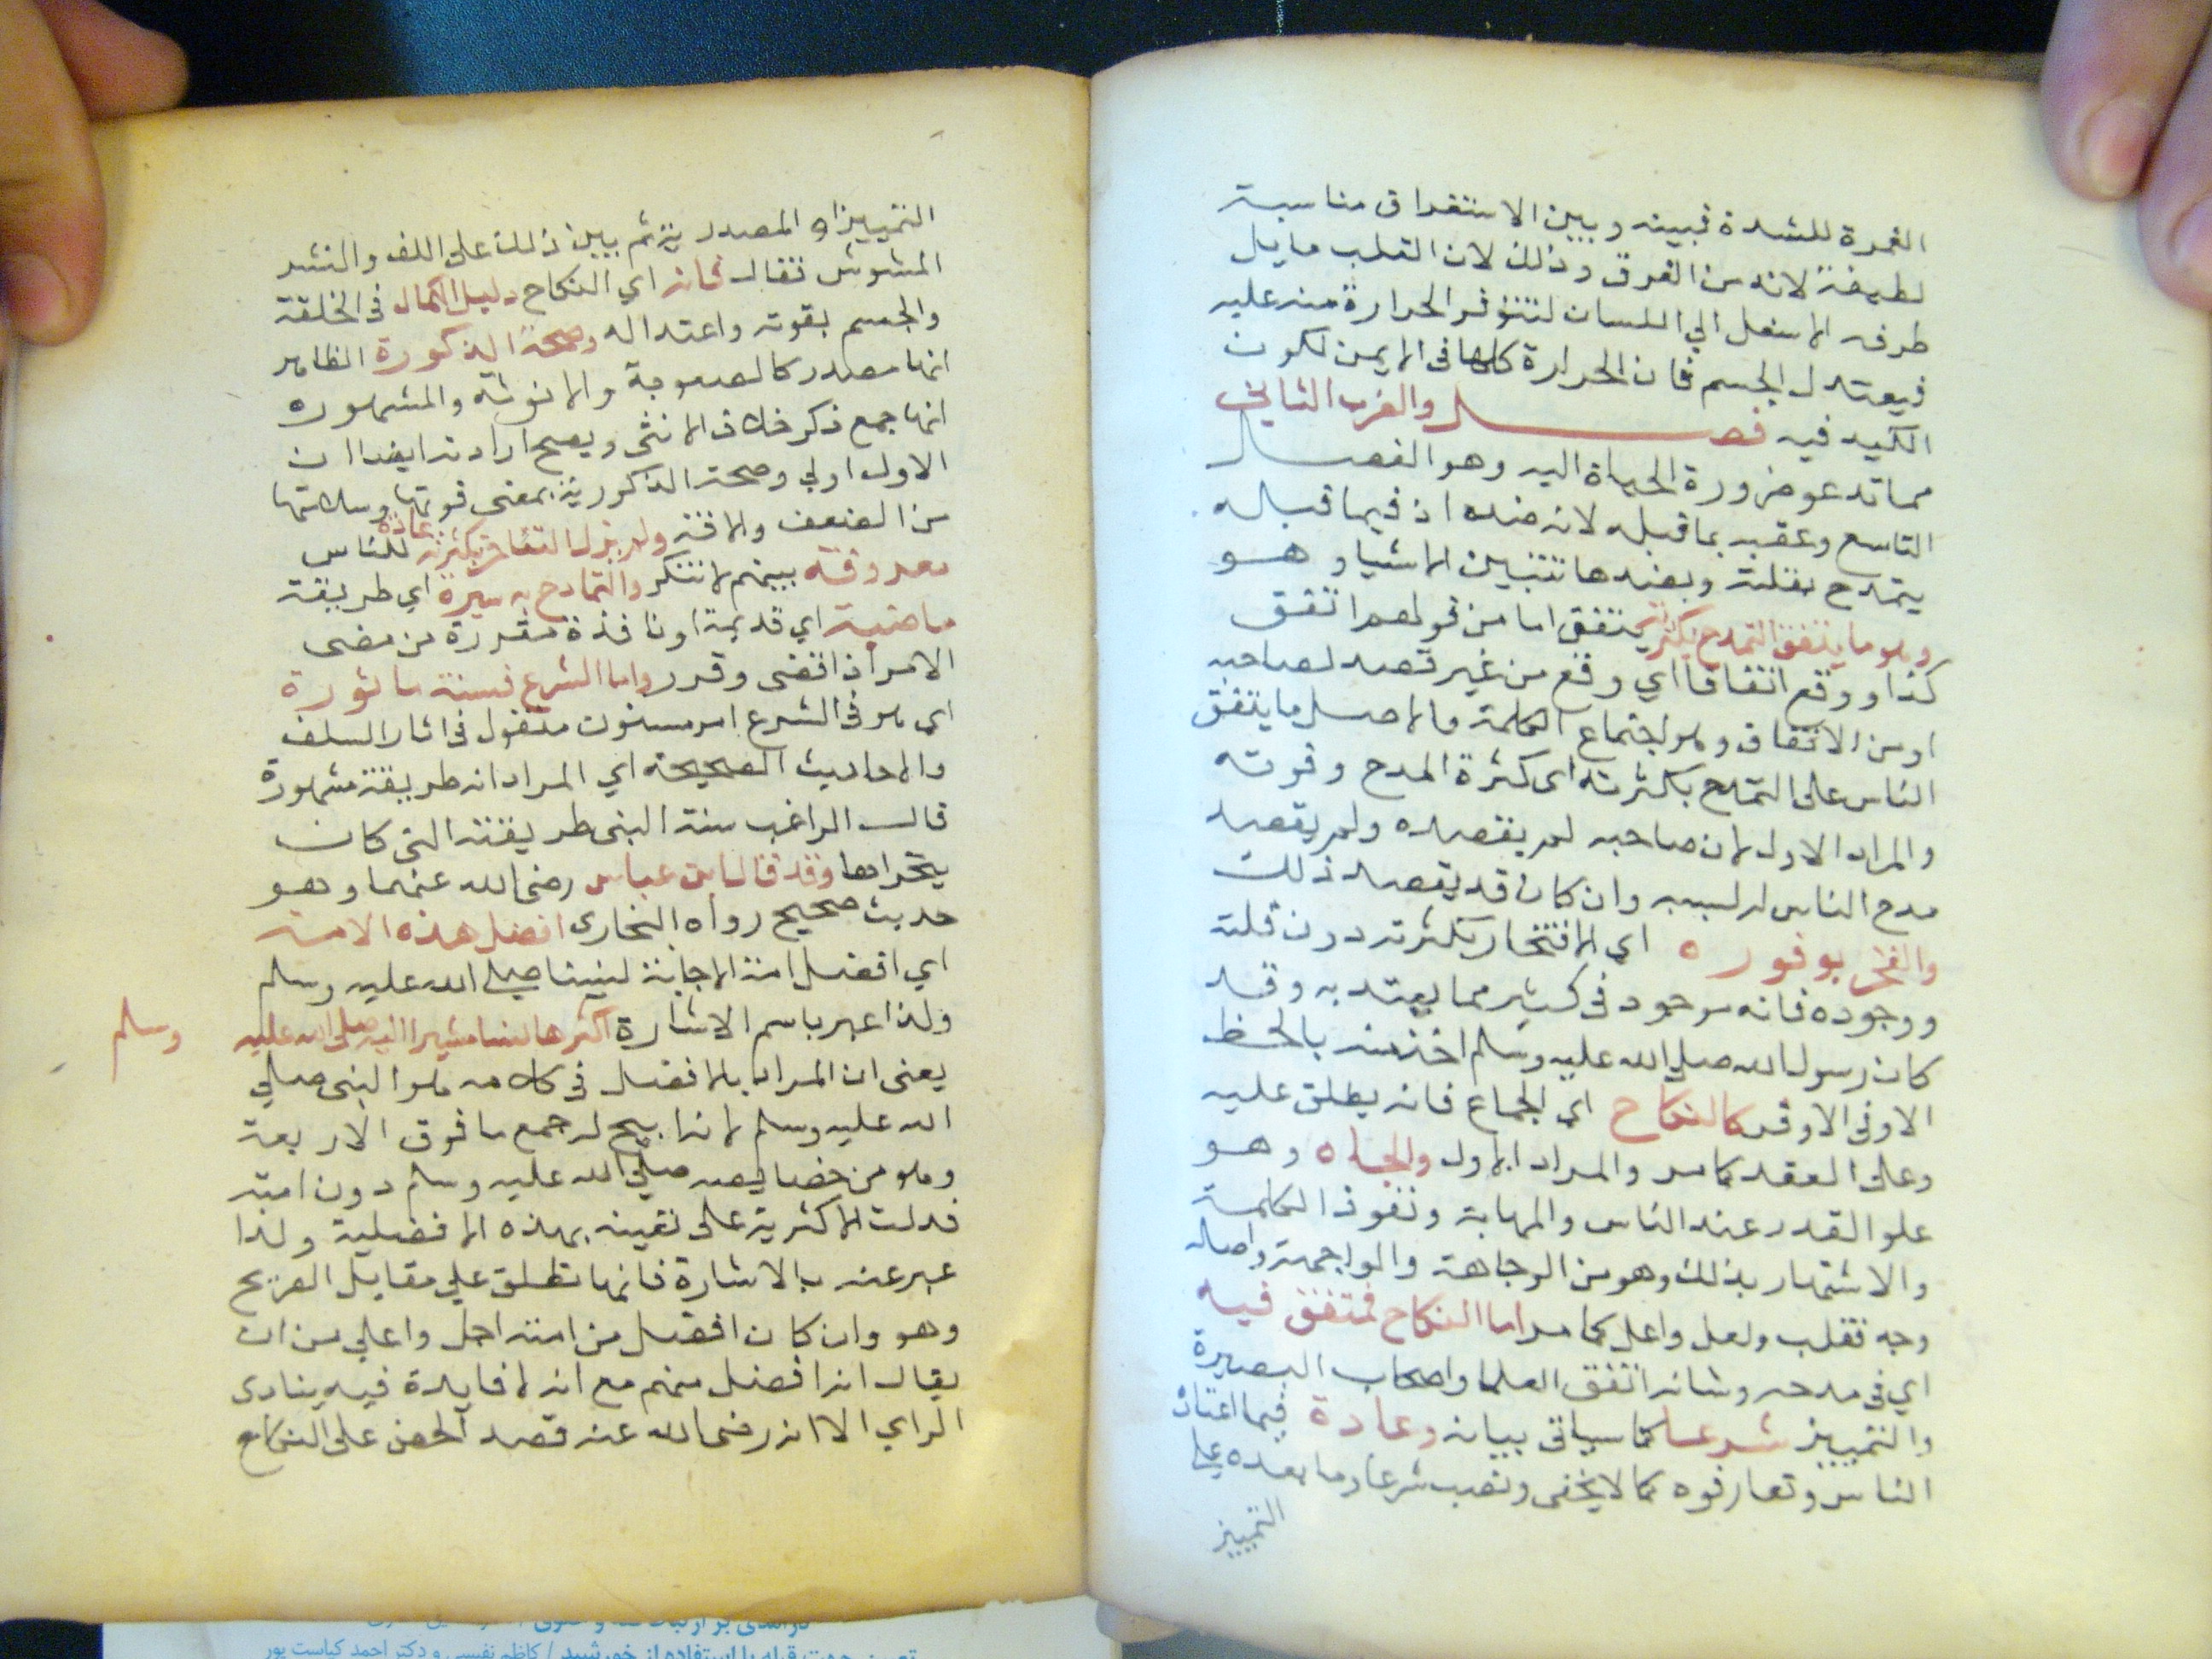 الغمرة للشدة فبينه وبين الاستغراق مناسبة
لطيفة لانه من الغرق وذلك لان القلب مايل
طرفه الاسفل الي اللسان لتتوفر الحرارة منه عليه
فيعتدل الجسم فان الحرارة كلها في الايمن لكون
الكبد فيه فصل والضرب الثاني
مما تدعو ضرورة الحياة اليه وهو الفصل
التاسع وعقبه بما قبله لانه ضده اذ فيما قبله
يتمدح بقلته وبضدها تتبين الاشيا وهو
وهو ما يتفق التمدح بكثرته يتفق اما من قولهم اتفق
كذا ووقع اتفاقا اي وقع من غير قصد لصاحبه
او من الاتفاق وهو اجتماع الكلمة والاصل ما يتفق
الناس على التمدح بكثرته اي كثرة المدح وقوته
والمراد الاول لان صاحبه لم يقصده ولم يقصد
مدح الناس له لسببه وان كان قد يقصد ذلك
والفخر بوفوره اي الافتخار بكثرته دون قلته
ووجوده فانه موجود في كثير مما يعتد به وقد
كان رسول الله صلي الله عليه وسلم اخذ منه بالحظ
الاوفي الاوفر كالنكاح اي الجماع فانه يطلق عليه
وعلى العقد كما مر والمراد الاول والجاه وهو
علو القدر عند الناس والمهابة ونفوذ الكلمة
والاشتهار بذلك وهو من الوجاهة والمواجهة واصله
وجه فقلب ولعل واعل كما مر اما النكاح فمتفق فيه
اي في مدحه وشانه اتفق العلما واصحاب البصيرة
والتمييز شرعا كما سياتي بيانه وعادة فيما اعتاده
الناس وتعارفوه كما لا يخفى ونصب شرعا وما بعده على
التمييز
التمييز او المصدرية ثم بين ذلك على اللف والنشر
المشوش فقال فانه اي النكاح دليل الكمال في الخلقة
والجسم بقوته واعتداله وصحة الذكورة الظاهر
انها مصدر كالصعوبة والانوثة والمشهور
انها جمع ذكر خلاف الانثى ويصح ارادته ايضا الا ان
الاول اولي وصحة الذكورية بمعنى قوتها وسلامتها
من الضعف والافة ولم يزل التفاخر بكثرته عادة للناس
معروفة بينهم لا تنكر والتمادح به سيرة اي طريقة
ماضية اي قديمة او نافذة مقررة من مضى
الامر اذا قضى وقدر واما الشرع فسنة ماثورة
اي هو في الشرع امر مسنون منقول في اثار السلف
والاحاديث الصحيحة اي المراد انه طريقة مشهورة
قال الراغب سنة النبي طريقته التي كان
يتحراها وقد قال ابن عباس رضي الله عنهما وهو
حديث صحيح رواه البخاري افضل هذه الامة
اي افضل امة الاجابة لنبينا صلي الله عليه وسلم
ولذا عبر باسم الاشارة اكثرها نسا مشيرا اليه صلى الله عليه وسلم
يعني ان المراد بالافضل في كلامه هو النبي صلي
الله عليه وسلم لانه ابيح له جمع ما فوق الاربعة
وهو من خصايصه صلي الله عليه وسلم دون امته
فدلت الاكثرية على تعينه بهذه الافضلية ولذا
عبر عنه بالاشارة فانها تطلق علي مقابل الصريح
وهو وان كان افضل من امته اجل واعلي من ان
يقال انه افضل منهم مع انه لا فايدة فيه ينادي
الراي الا انه رضي الله عنه قصد الحض على النكاح